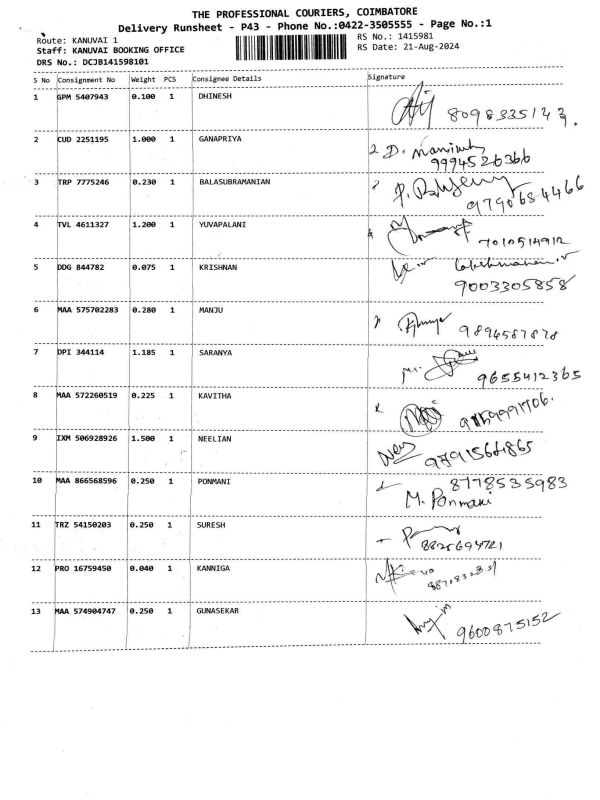 THE PROFESSIONAL COURIERS, COIMBATORE
Delivery Runsheet - P43 - Phone No.:0422-3505555 - Page No.:1
Route: KANUVAI 1
RS No.: 1415981
Staff: KANUVAI BOOKING OFFICE
RS Date: 21-Aug-2024
DRS No.: DCJB141598101
S No Consignment No Weight PCS Consignee Details Signature
1 GPM 5407943 0.100 1 DHINESH
8098335143.
2 CUD 2251195 1.000 1 GANAPRIYA
9994526366
3 TRP 7775246 0.230 1 BALASUBRAMANIAN
9790684466
4 TVL 4611327 1.200 1 YUVAPALANI
7010514912
5 DDG 844782 0.075 1 KRISHNAN
9003305858
6 MAA 575702283 0.280 1 MANJU
9894587878
7 DPI 344114 1.185 1 SARANYA
9655412365
8 MAA 572260519 0.225 1 KAVITHA
9 IXM 506928926 1.500 1 NEELIAN
10 MAA 866568596 0.250 1 PONMANI
8778535983
M. Ponmani
11 TRZ 54150203 0.250 1 SURESH
12 PRO 16759450 0.040 1 KANNIGA
13 MAA 574904747 0.250 1 GUNASEKAR
9600875152